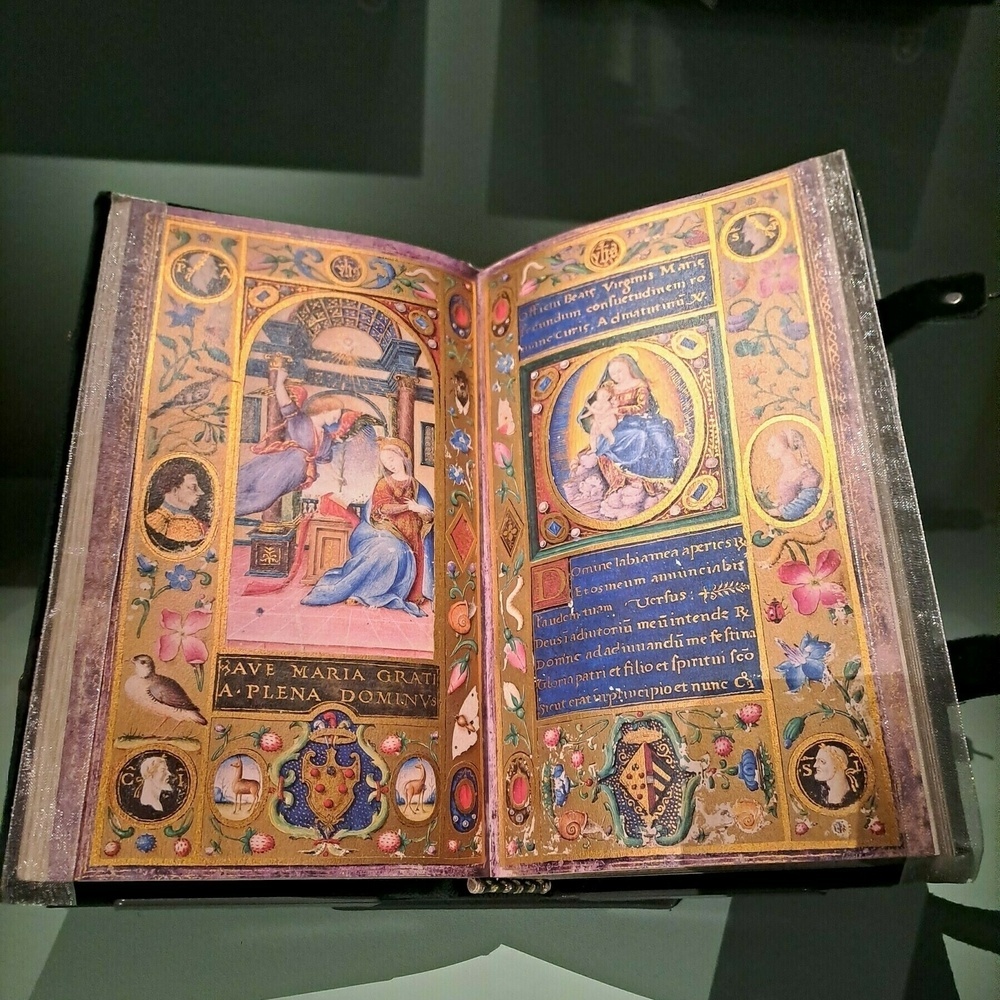 AVE MARIA GRATI
A · PLENA DOMINVS
Officiū Beate Virginis Marie
secundum consuetudinem ro
mane curie. Ad matutinū V.
Domine labia mea aperies ℟
Et os meum annunciabit
laudem tuam Versus:
Deus ī adiutoriū meū intende ℟
Domine ad adiuuandū me festina
Gloria patri et filio et spiritui scō
Sicut erat in principio et nunc &